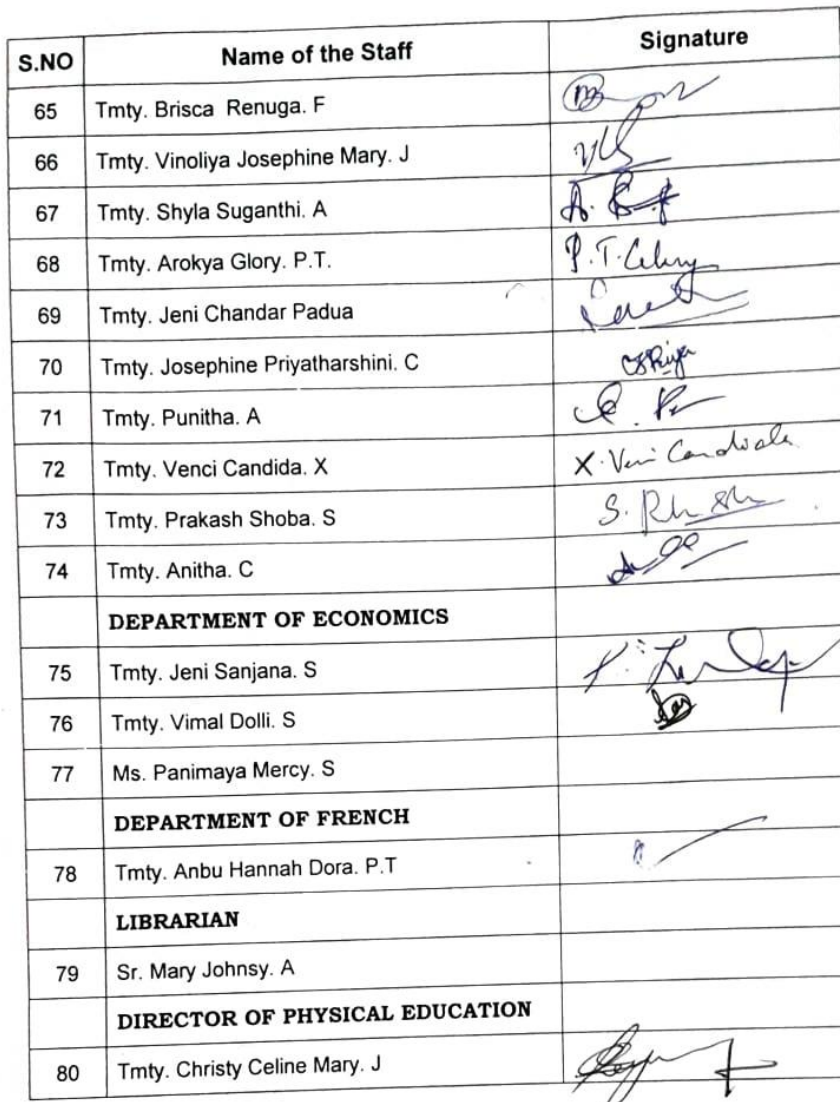 S.NO Name of the Staff Signature
65 Tmty. Brisca Renuga. F
66 Tmty. Vinoliya Josephine Mary. J
67 Tmty. Shyla Suganthi. A A.
68 Tmty. Arokya Glory. P.T. P.T.
69 Tmty. Jeni Chandar Padua
70 Tmty. Josephine Priyatharshini. C
71 Tmty. Punitha. A
72 Tmty. Venci Candida. X X.
73 Tmty. Prakash Shoba. S S.
74 Tmty. Anitha. C
DEPARTMENT OF ECONOMICS
75 Tmty. Jeni Sanjana. S
76 Tmty. Vimal Dolli. S
77 Ms. Panimaya Mercy. S
DEPARTMENT OF FRENCH
78 Tmty. Anbu Hannah Dora. P.T
LIBRARIAN
79 Sr. Mary Johnsy. A
DIRECTOR OF PHYSICAL EDUCATION
80 Tmty. Christy Celine Mary. J